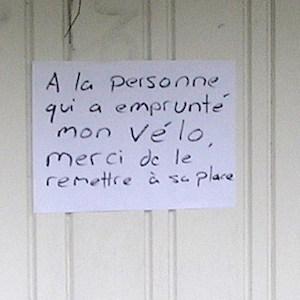 A la personne
qui a emprunté
mon vélo,
merci de le
remettre à sa place